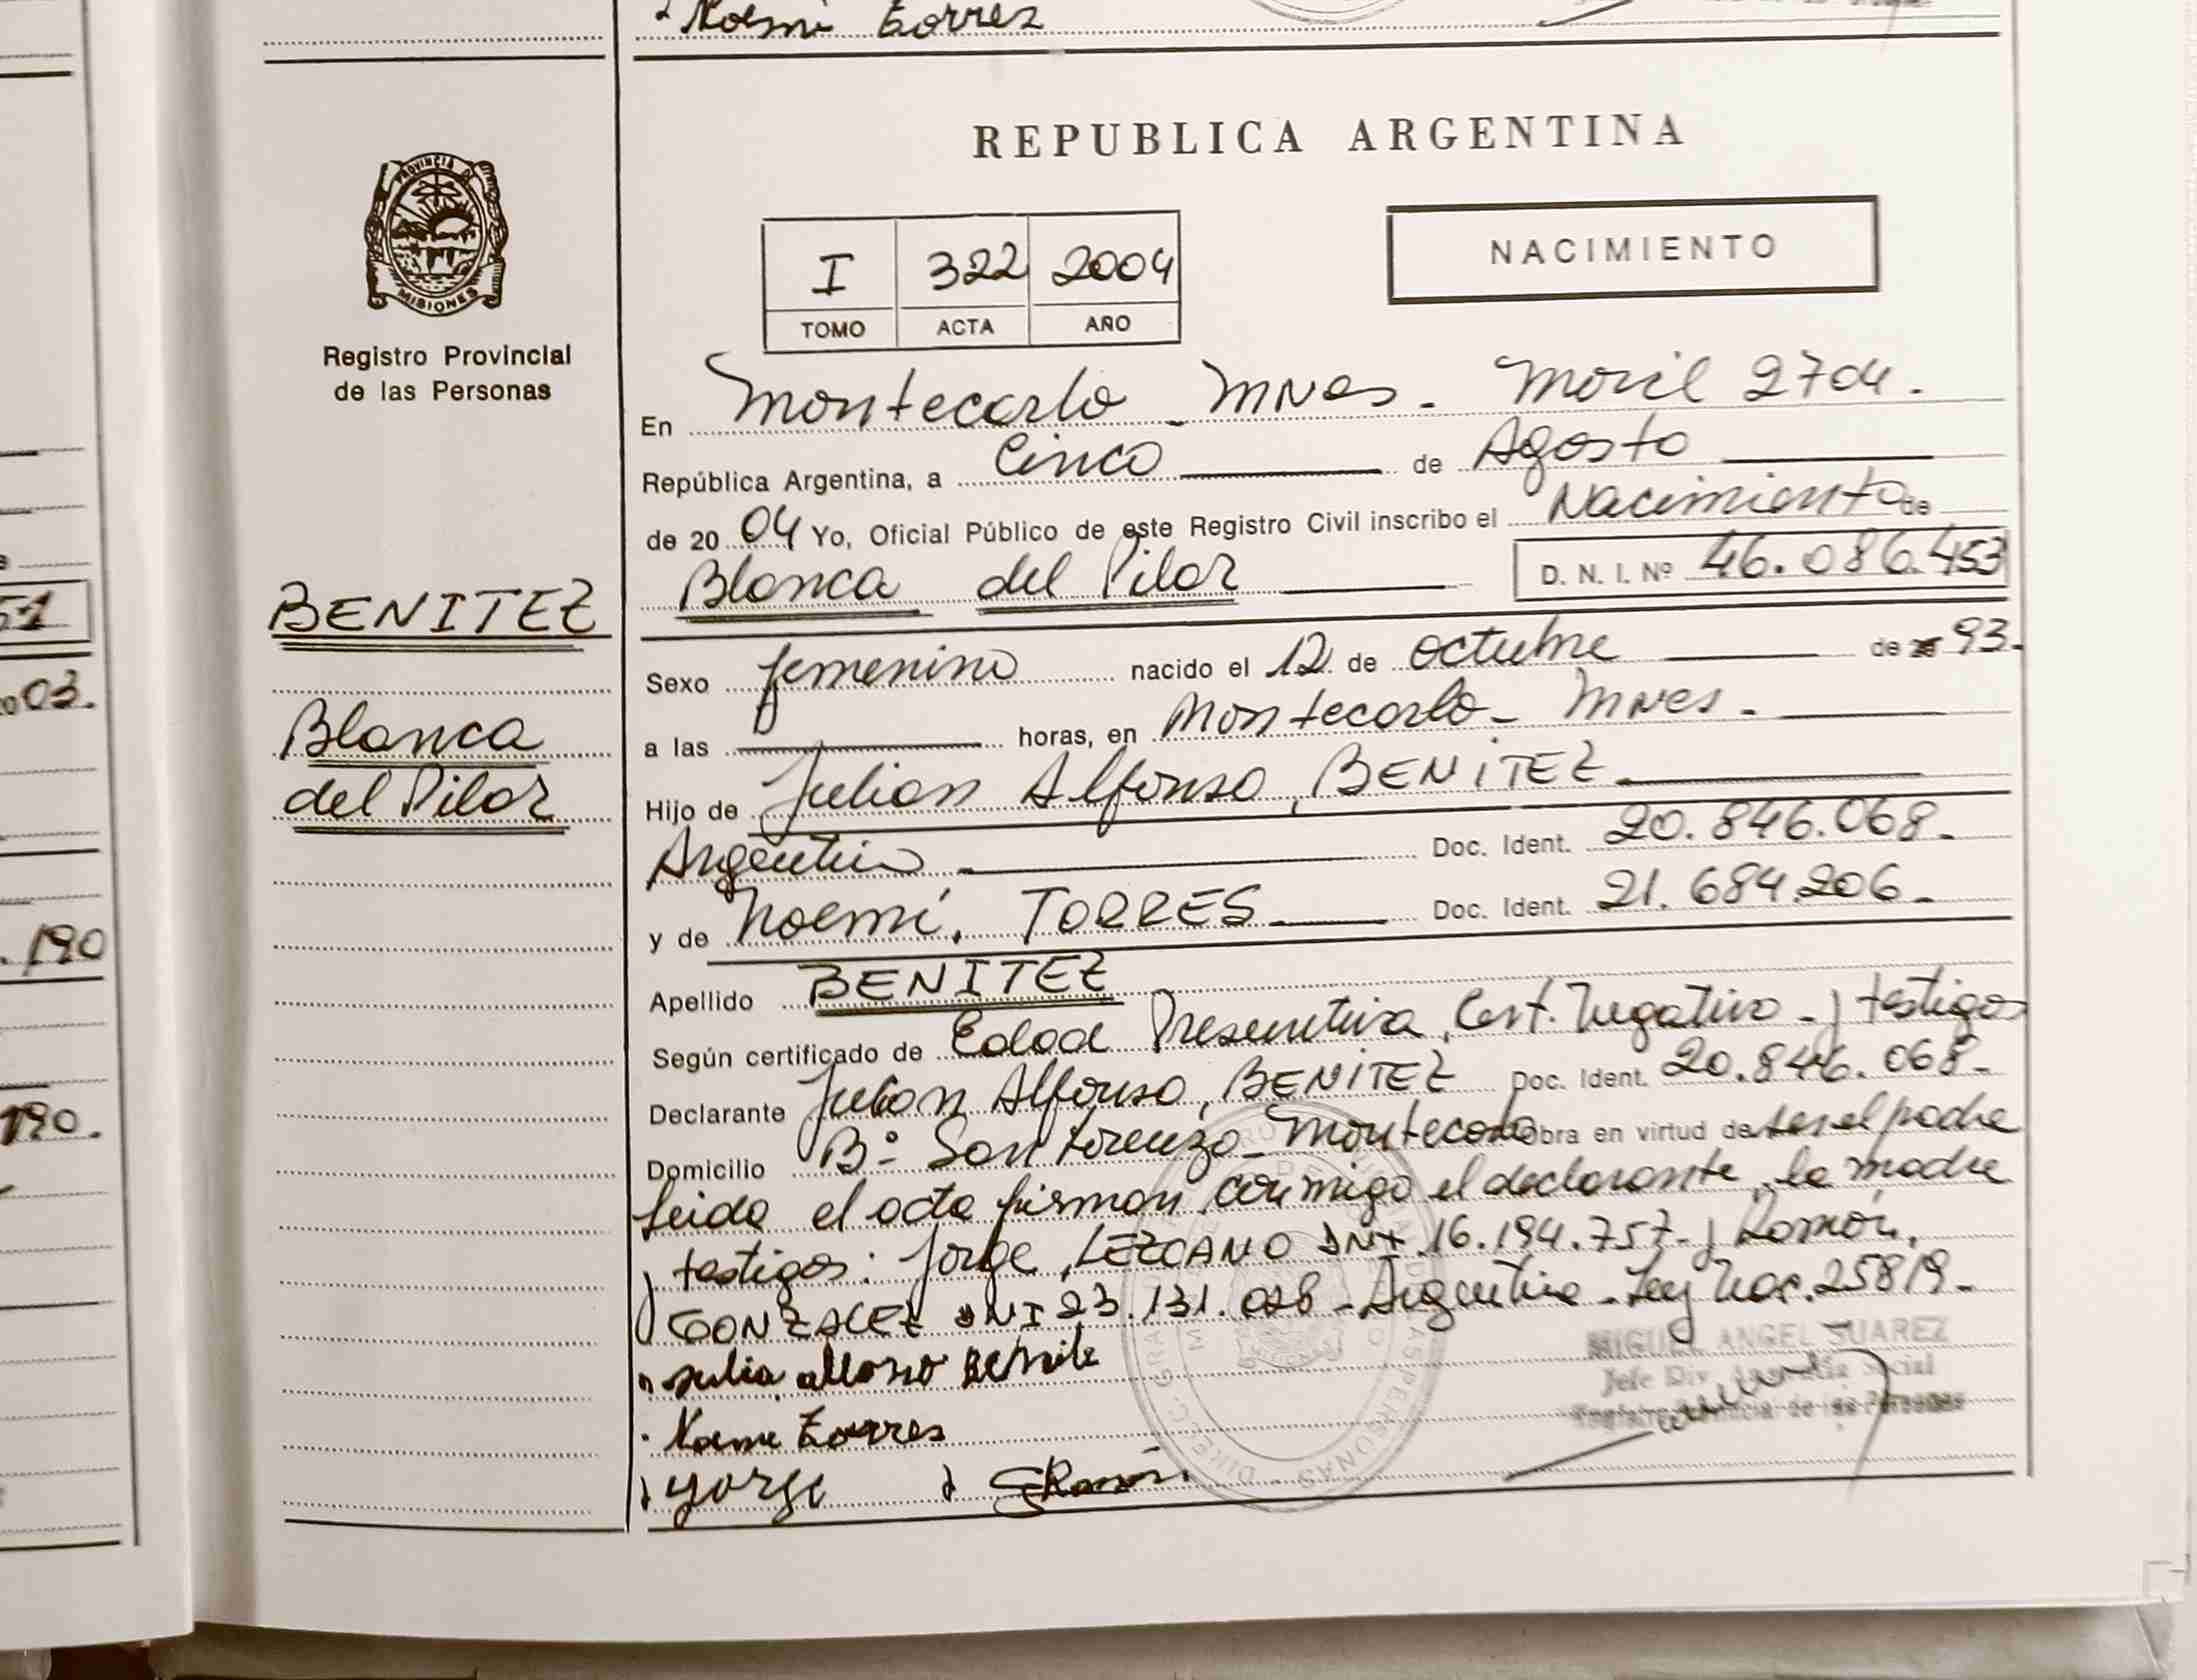 Noemi Torres
51
03.
.190
190.
PROVINCIA DE
MISIONES
Registro Provincial
de las Personas
BENITEZ
Blanca
del Pilar
REPUBLICA ARGENTINA
I 322 2004
TOMO ACTA AÑO
NACIMIENTO
En Montecarlo - Mnes. Movil 2704.
República Argentina, a Cinco de Agosto
de 2004 Yo, Oficial Público de este Registro Civil inscribo el Nacimiento de
Blanca del Pilar D. N. I. Nº 46.086.453
Sexo femenino nacido el 12 de octubre de 93.
a las horas, en Montecarlo - Mnes.
Hijo de Julian Alfonso, BENITEZ
Argentino Doc. Ident. 20.846.068.
y de Noemi, TORRES Doc. Ident. 21.684.206
Apellido BENITEZ
Según certificado de Edad Presuntiva, Cert. Negativo - y testigos
Declarante Julian Alfonso, BENITEZ Doc. Ident. 20.846.068-
Domicilio Bº San Lorenzo - Montecarlo Obra en virtud de ser el padre
Leida el acta firman conmigo el declarante, la madre
y testigos: Jorge, LEZCANO DNI 16.194.757 - y Ramón,
GONZALEZ DNI 23.131.028 - Argentina - Ley Nac. 25819-
Noemi Torres
Jorge Ramon
MIGUEL ANGEL SUAREZ
Jefe Div. Social
Registro Provincial de las Personas